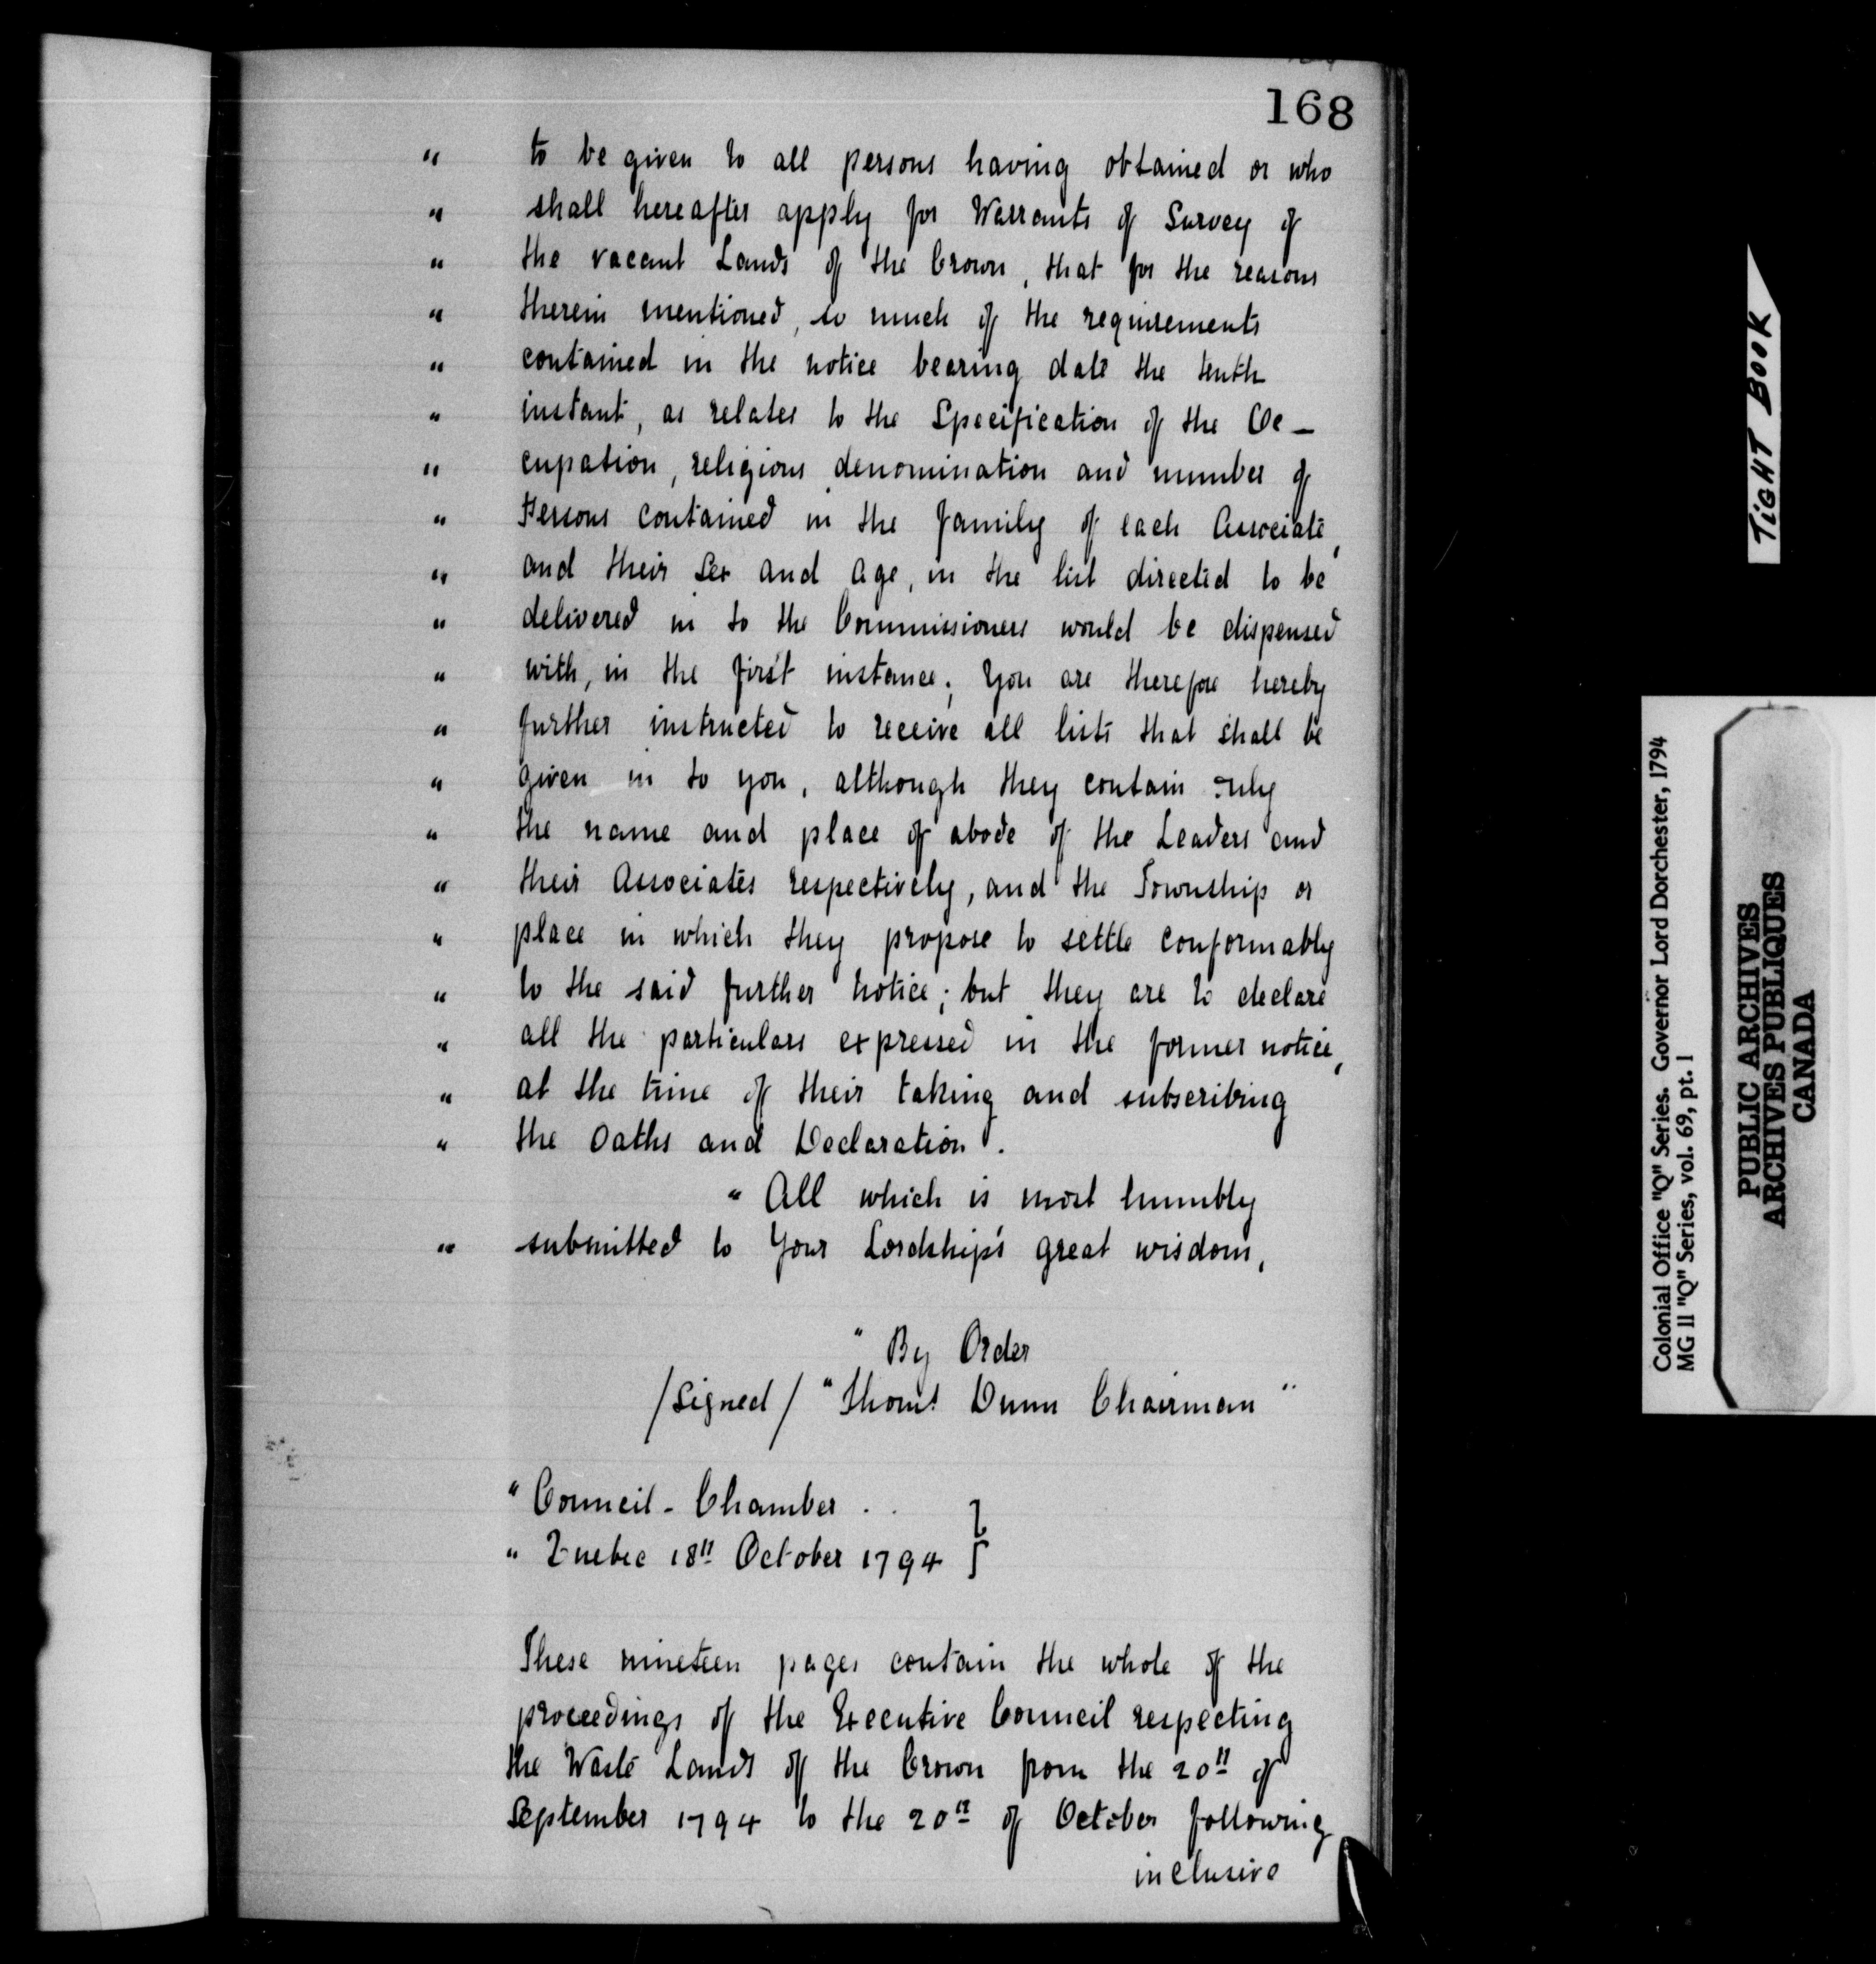 168
" to be given to all persons having obtained or who
" shall hereafter apply for Warrants of Survey of
" the vacant Lands of the Crown, that for the reasons
" therein mentioned, so much of the requirements
" contained in the notice bearing date the tenth
" instant, as relates to the Specification of the Oc-
" cupation, religious denomination and number of
" Persons contained in the family of each Associate,
" and their Sex and Age, in the list directed to be
" delivered in to the Commissioners would be dispensed
" with, in the first instance; You are therefore hereby
" further instructed to receive all lists that shall be
" given in to you, although they contain only
" the name and place of abode of the Leaders and
" their Associates respectively, and the Township or
" place in which they propose to settle conformably
" to the said further notice; but they are to declare
" all the particulars expressed in the former notice,
" at the time of their taking and subscribing
" the Oaths and Declaration.
" All which is most humbly
" submitted to Your Lordship's great wisdom,
" By Order
/Signed/ "Thoms Dunn Chairman"
" Council-Chamber . . }
" Quebec 18th October 1794 }
These nineteen pages contain the whole of the
proceedings of the Executive Council respecting
the Waste Lands of the Crown from the 20th of
September 1794 to the 20th of October following
inclusive
TIGHT BOOK
Colonial Office "Q" Series. Governor Lord Dorchester, 1794
MG 11 "Q" Series, vol. 69, pt. 1
PUBLIC ARCHIVES
ARCHIVES PUBLIQUES
CANADA